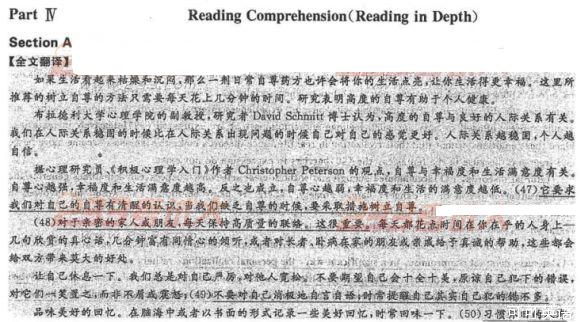 Part Ⅳ Reading Comprehension(Reading in Depth)
Section A
【全文翻译】
如果生活看起来枯燥和沉闷,那么一剂日常自尊药方也许会将你的生活点亮,让你生活得更幸福。这里所
推荐的树立自尊的方法只需要每天花上几分钟的时间。研究表明高度的自尊有助于个人健康。
布拉德利大学心理学院的副教授,研究者 David Schmitt 博士认为,高度的自尊与良好的人际关系有关。
我们在人际关系稳固的时候比在人际关系出现问题的时候自己对自己的感觉更好。人际关系越稳固,个人越
自信。
据心理研究员、《积极心理学入门》作者 Christopher Peterson 的观点,自尊与幸福度和生活满意度有关。
自尊心越强,幸福度和生活满意度越高。反之也成立,自尊心越弱,幸福度和生活的满意度越低。(47)它要求
我们对自己的自尊有清醒的认识,当我们缺乏自尊的时候,要采取措施树立自尊。
(48)对于亲密的家人或朋友,每天保持高质量的联络。这很重要。每天都花点时间在你在乎的人身上——
几句欣赏的真心话,几分钟富有同情心的倾听,或者对长者、卧病在家的朋友或亲戚给予真诚的帮助,这些都会
给双方带来莫大的好处。
让自己休息一下。我们总是对自己严厉,对他人宽松。不要期望自己会十全十美,原谅自己犯下的错误,
对它们一笑置之,而非不屑或震怒;(49)不要对自己消极地自言自语;时常提醒自己其实自己犯的错不多。
品味美好的回忆。在脑海中或者以书面的形式记录一些美好回忆,时常回味一下。(50)习惯